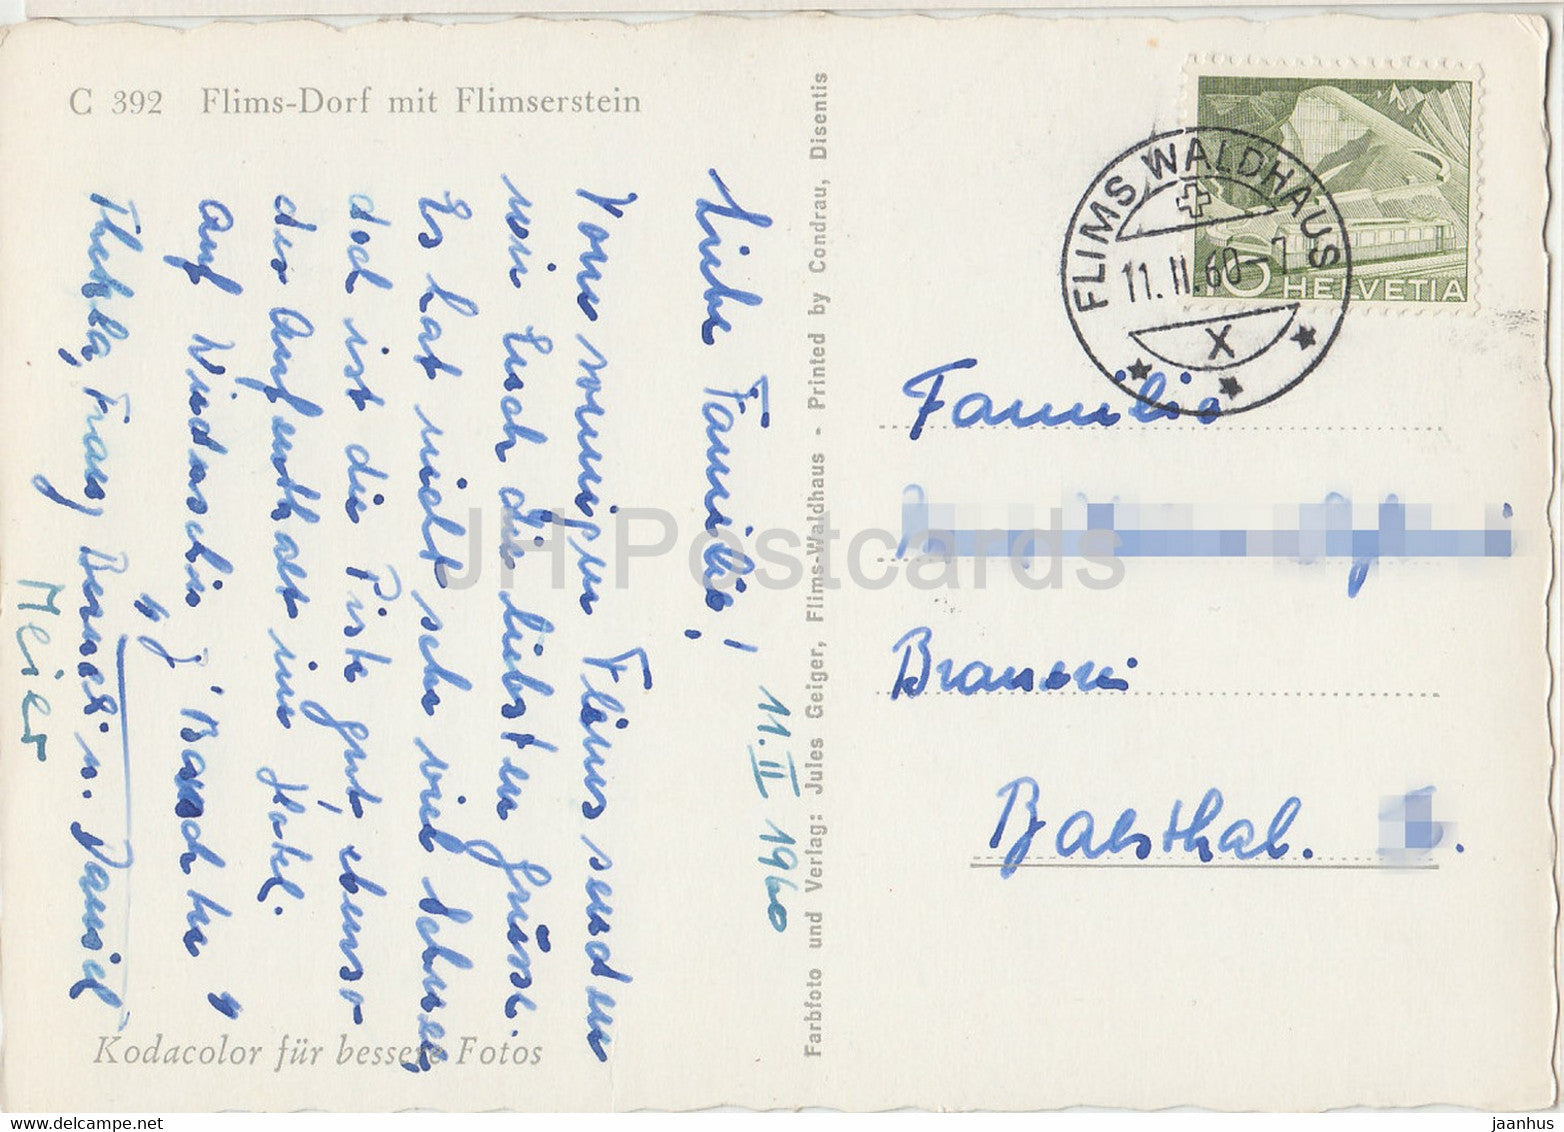 C 392 Flims-Dorf mit Flimserstein
11. II 1960
Liebe Familie!
Vom sonnigen Flims senden
wir Euch die liebsten Grüsse.
Es hat nicht sehr viel Schnee,
doch ist die Piste gut, ebenso
der Aufenthalt im Hotel.
Auf Wiedersehn
Thekla, Franz, Bernet u. Daniel
Meier
Kodacolor für bessere Fotos
Farbfoto und Verlag: Jules Geiger, Flims-Waldhaus - Printed by Condrau, Disentis
FLIMS WALDHAUS
11. II. 60 - 7
X
10 HELVETIA
Familie
Brauerei
Balsthal.
JH Postcards
www.delcampe.net
jaanhus